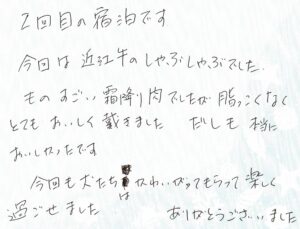 2回目の宿泊です
今回は近江牛のしゃぶしゃぶでした.
ものすごい霜降り肉でしたが脂っこくなく
とてもおいしく戴きました だしも本当に
おいしかったです
今回も犬たちはかわいがってもらって楽しく
過ごせました ありがとうございました